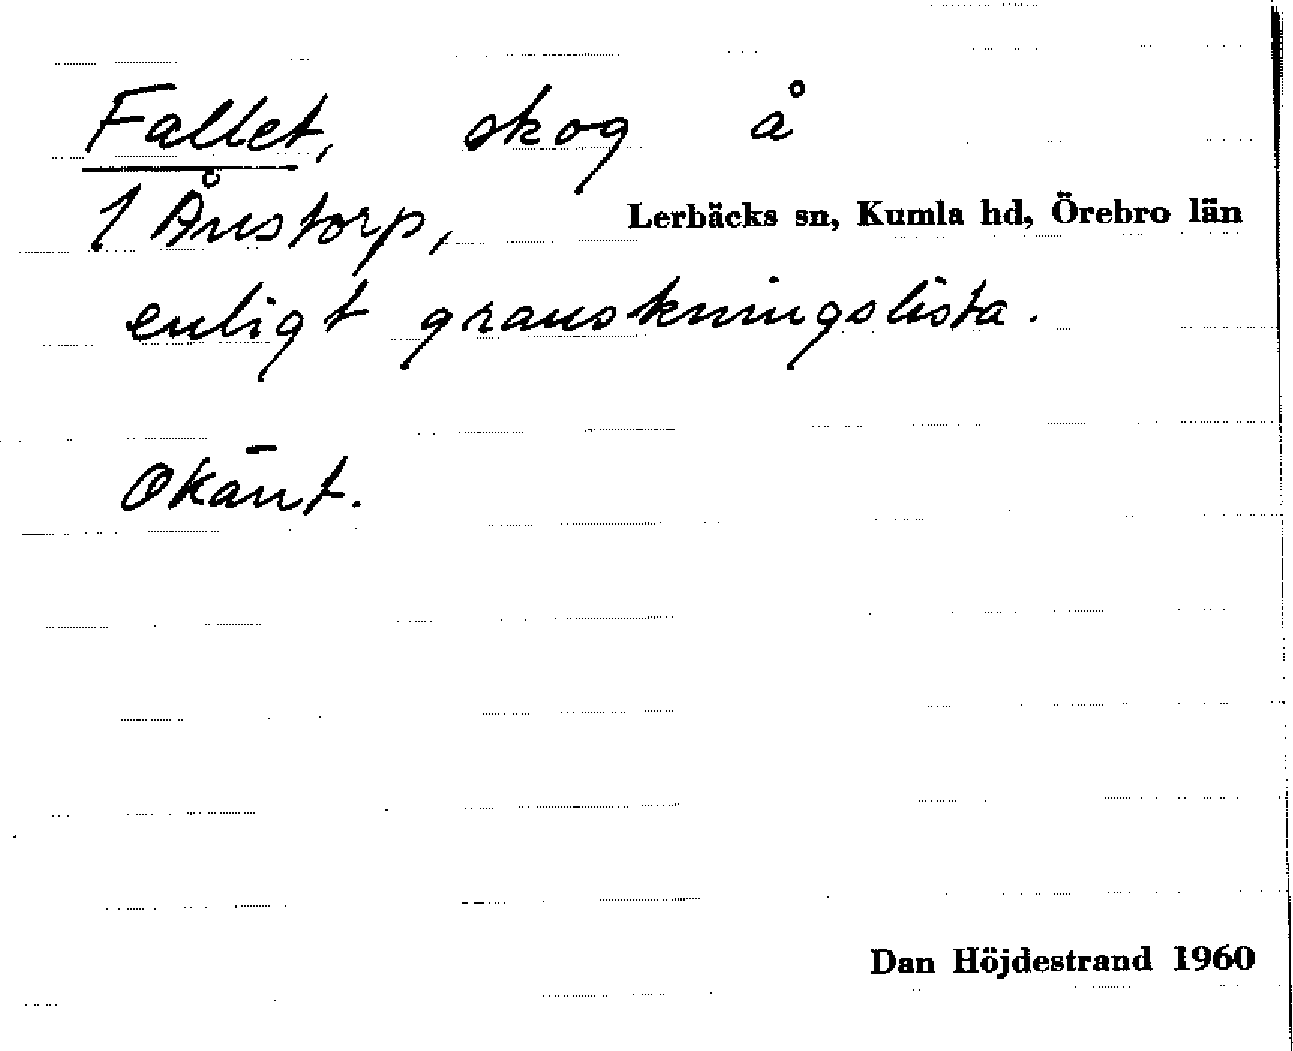 Fallet, skog å
1 Ånstorp, Lerbäcks sn, Kumla hd, Örebro län
enligt granskningslista.
Okänt.
Dan Höjdestrand 1960